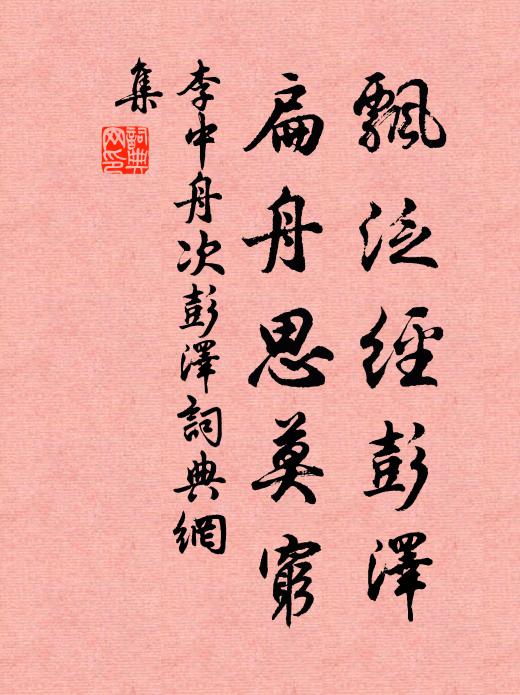 飄泛經彭澤
扁舟思莫窮
李中舟次彭澤詞典網
集
詞典
网印